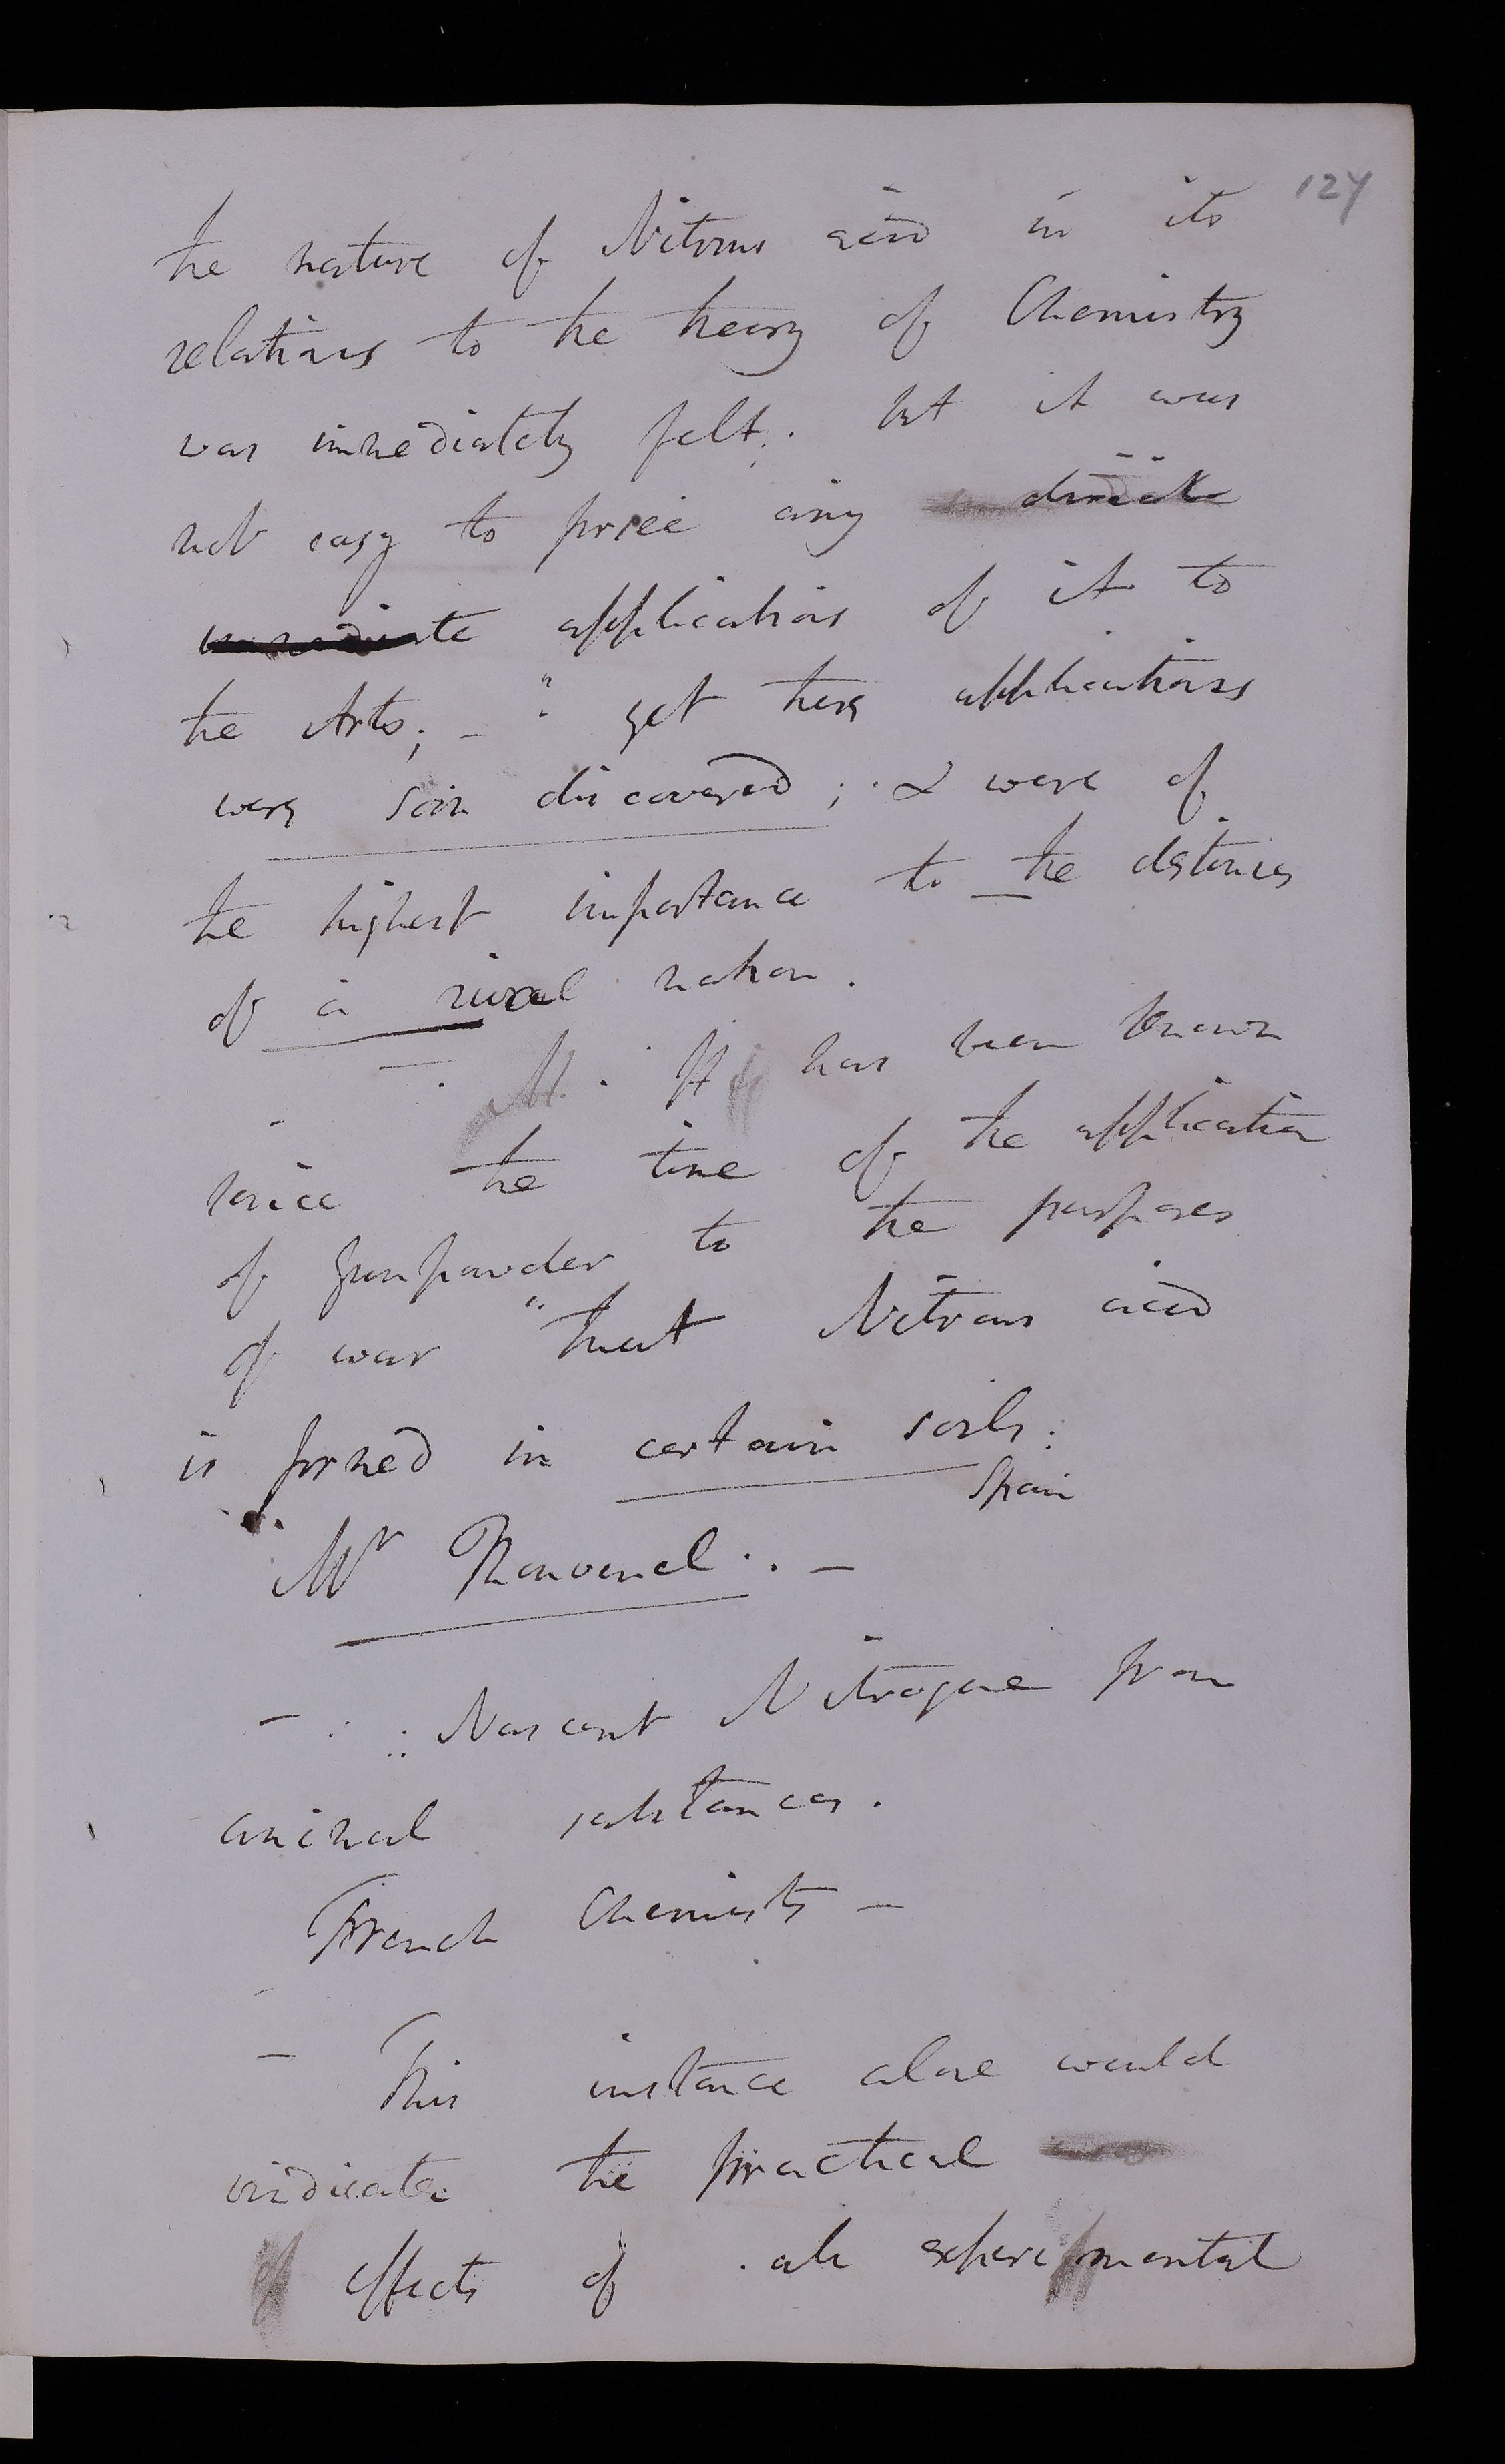 127
the nature of Nitrous acid in its
relations to the theory of Chemistry
was immediately felt; but it was
not easy to price any direct
immediate applications of it to
the Arts; - yet these applications
were soon discovered; & were of
the highest importance to the destinies
of a rival nation.
- . It has been known
since the time of the application
of gunpowder to the purposes
of war "that Nitrous acid
is formed in certain soils:
Spain
Mr Thouvenel. -
- Nascent Nitrogene from
animal substances.
French Chemists -
- This instance alone would
vindicate the practical
effects of experimental